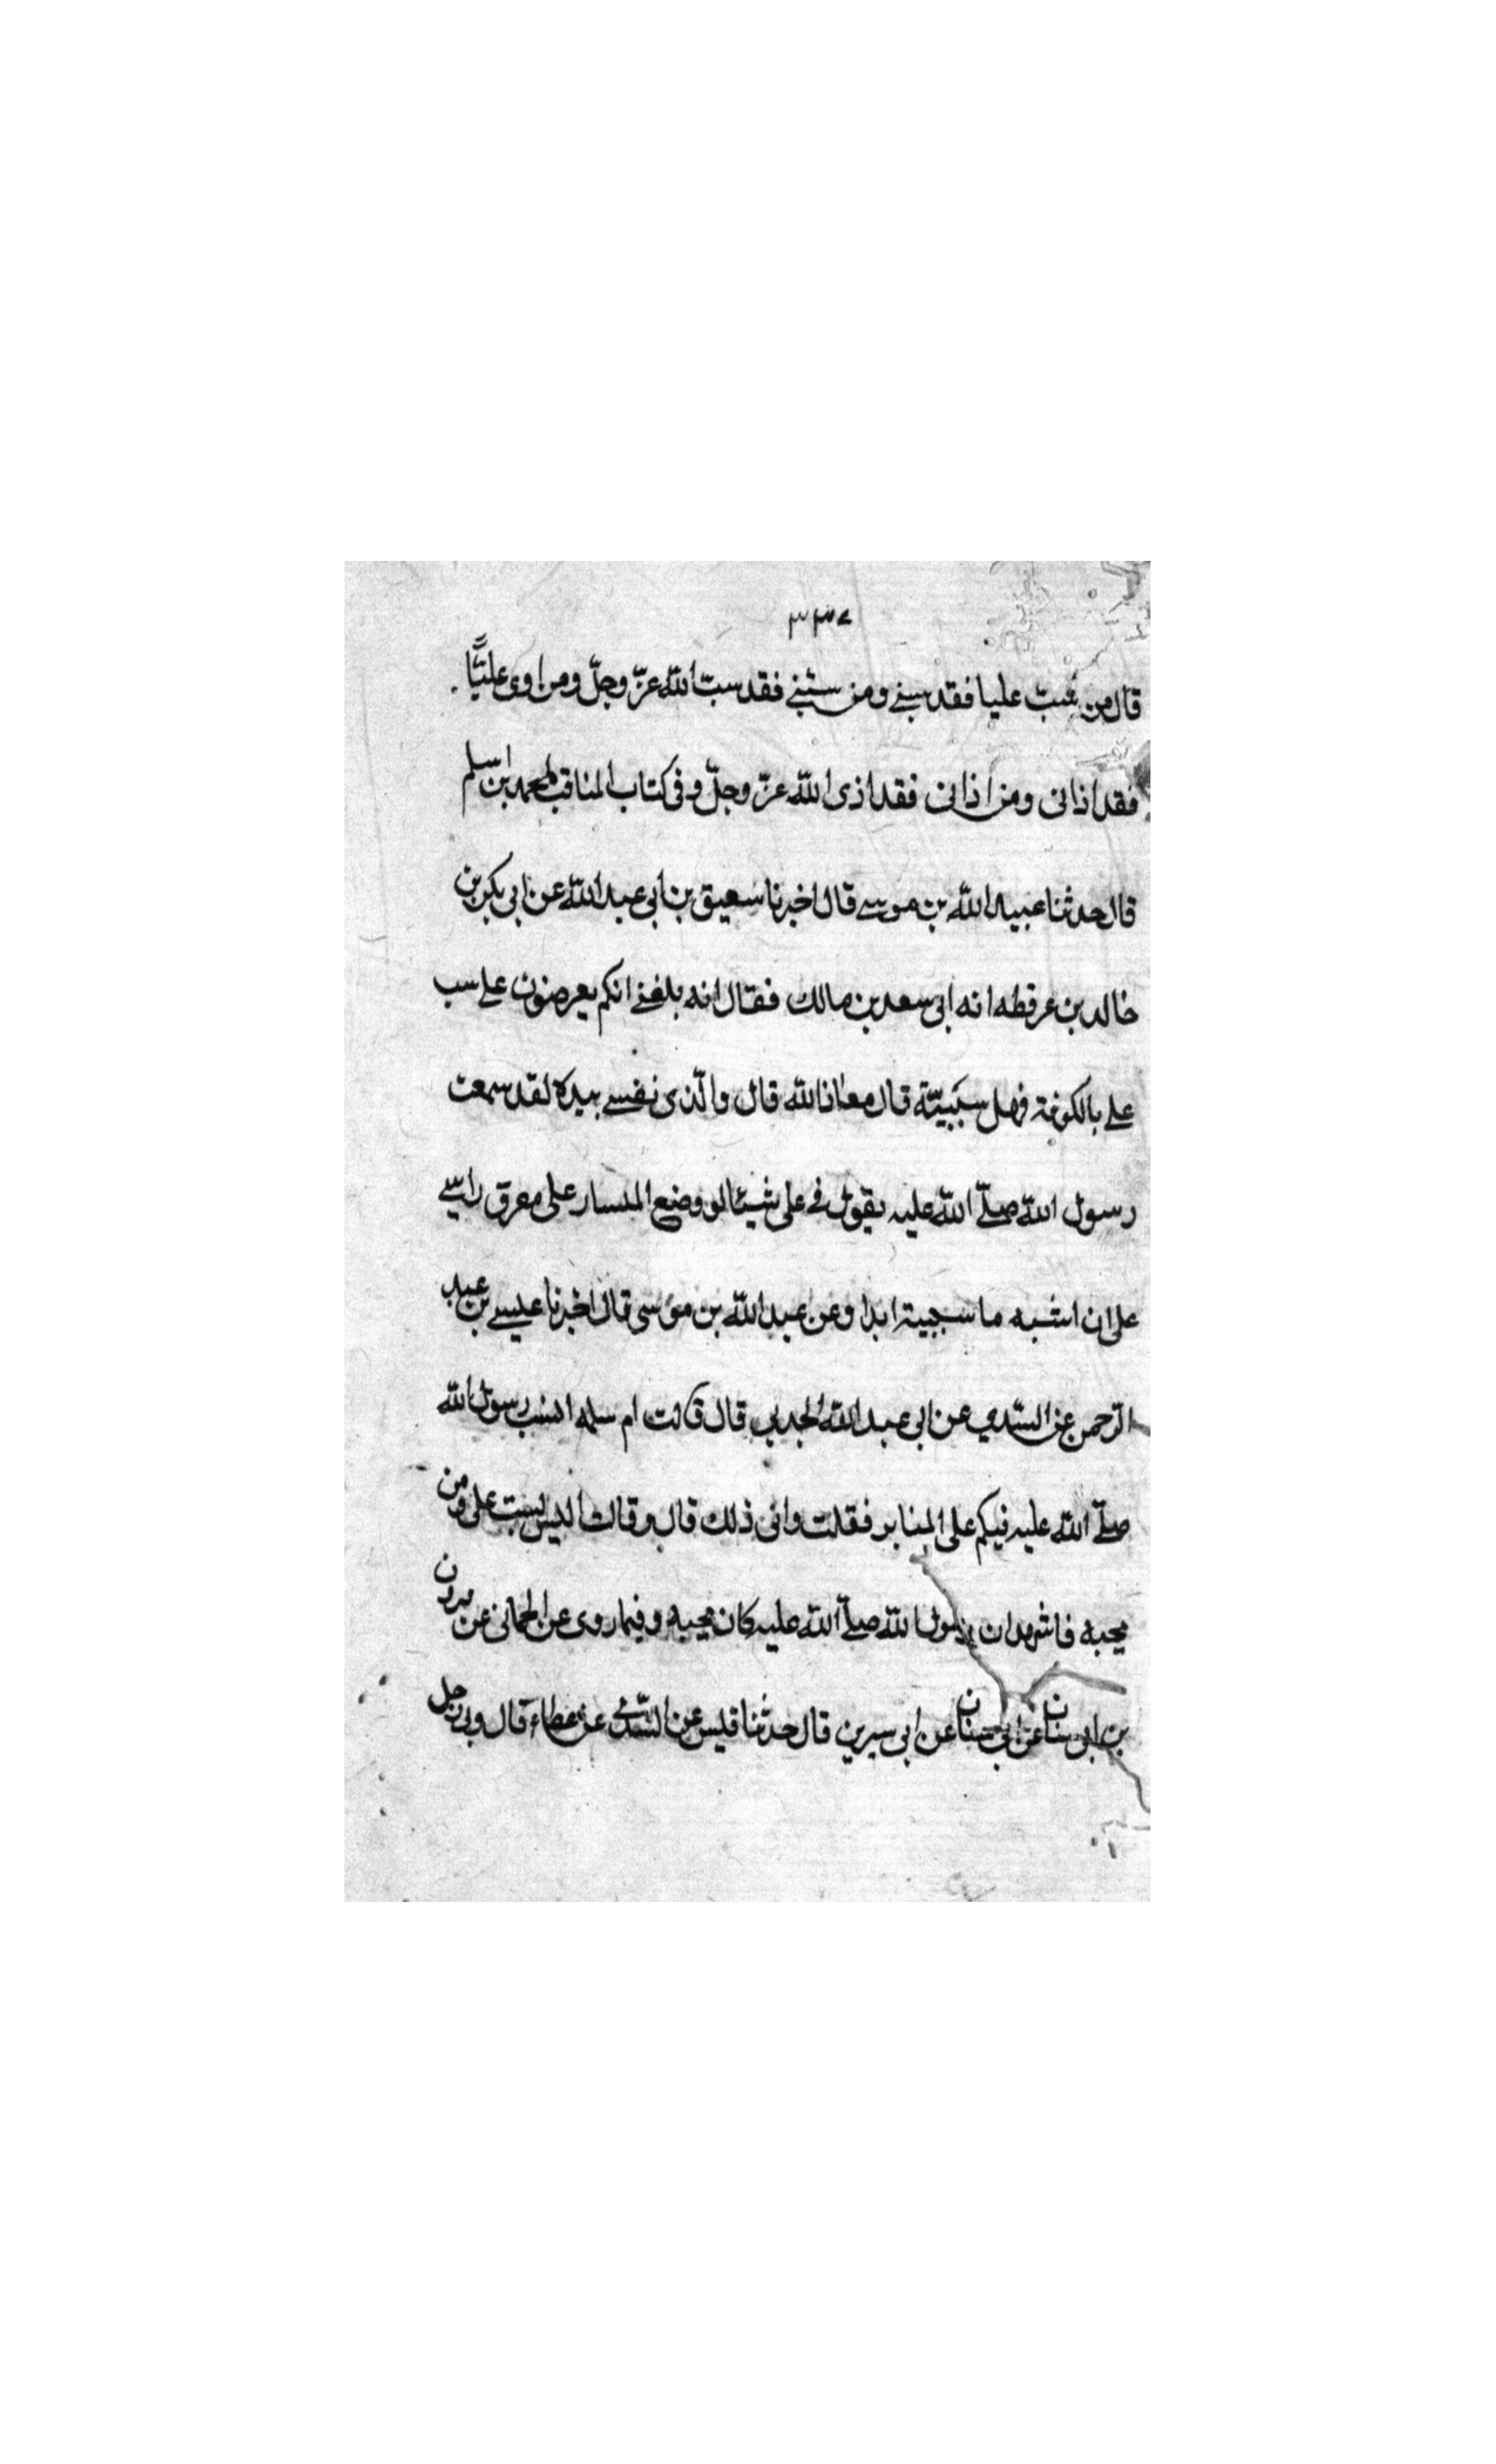 ٣٣٧
قال من سب عليا فقد سبنے ومن سبّنے فقد سبّ اللّه عزّ وجلّ ومن اوى عليّاً
فقد اذانى ومن اذانى فقد اذى اللّه عزّ وجلّ وفى كتاب المناقب لمحمد ابن اسلم
قال حدثنا عبيد اللّه بن موسے قال اخبرنا سعيق بن ابى عبد اللّه عن ابى بكر بن
خالد بن عرفطه انه اتى سعد بن مالك فقال انه بلغنے انكم يعرضون على سب
على بالكوفة فهل سببيتة قال معاذ اللّه قال والّذى نفسے بيده لقد سمعت
رسول اللّه صلّے اللّه عليه يقول فے على شيئا لو وضع المنسار على مفرق راسے
على ان اسبه ما سببية ابدا وعن عبد اللّه بن موسى قال اخبرنا عيسے بن عبد
الرّحمن عن السّدي عن ابى عبد اللّه الجدلي قال قالت ام سلمه السب رسول اللّه
صلّے اللّه عليه فيكم على المنابر فقلت وانى ذلك قال وقالت اليس يسب على ومن
يحبه فاشهد ان رسول اللّه صلّے اللّه عليه كان يحبه وفيما روى عن الحمانى عن
بن ابى سنان عن ابى سنان عن ابى سيرين قال حدثنا قيس عن السّدّي عن عطاء قال رجل